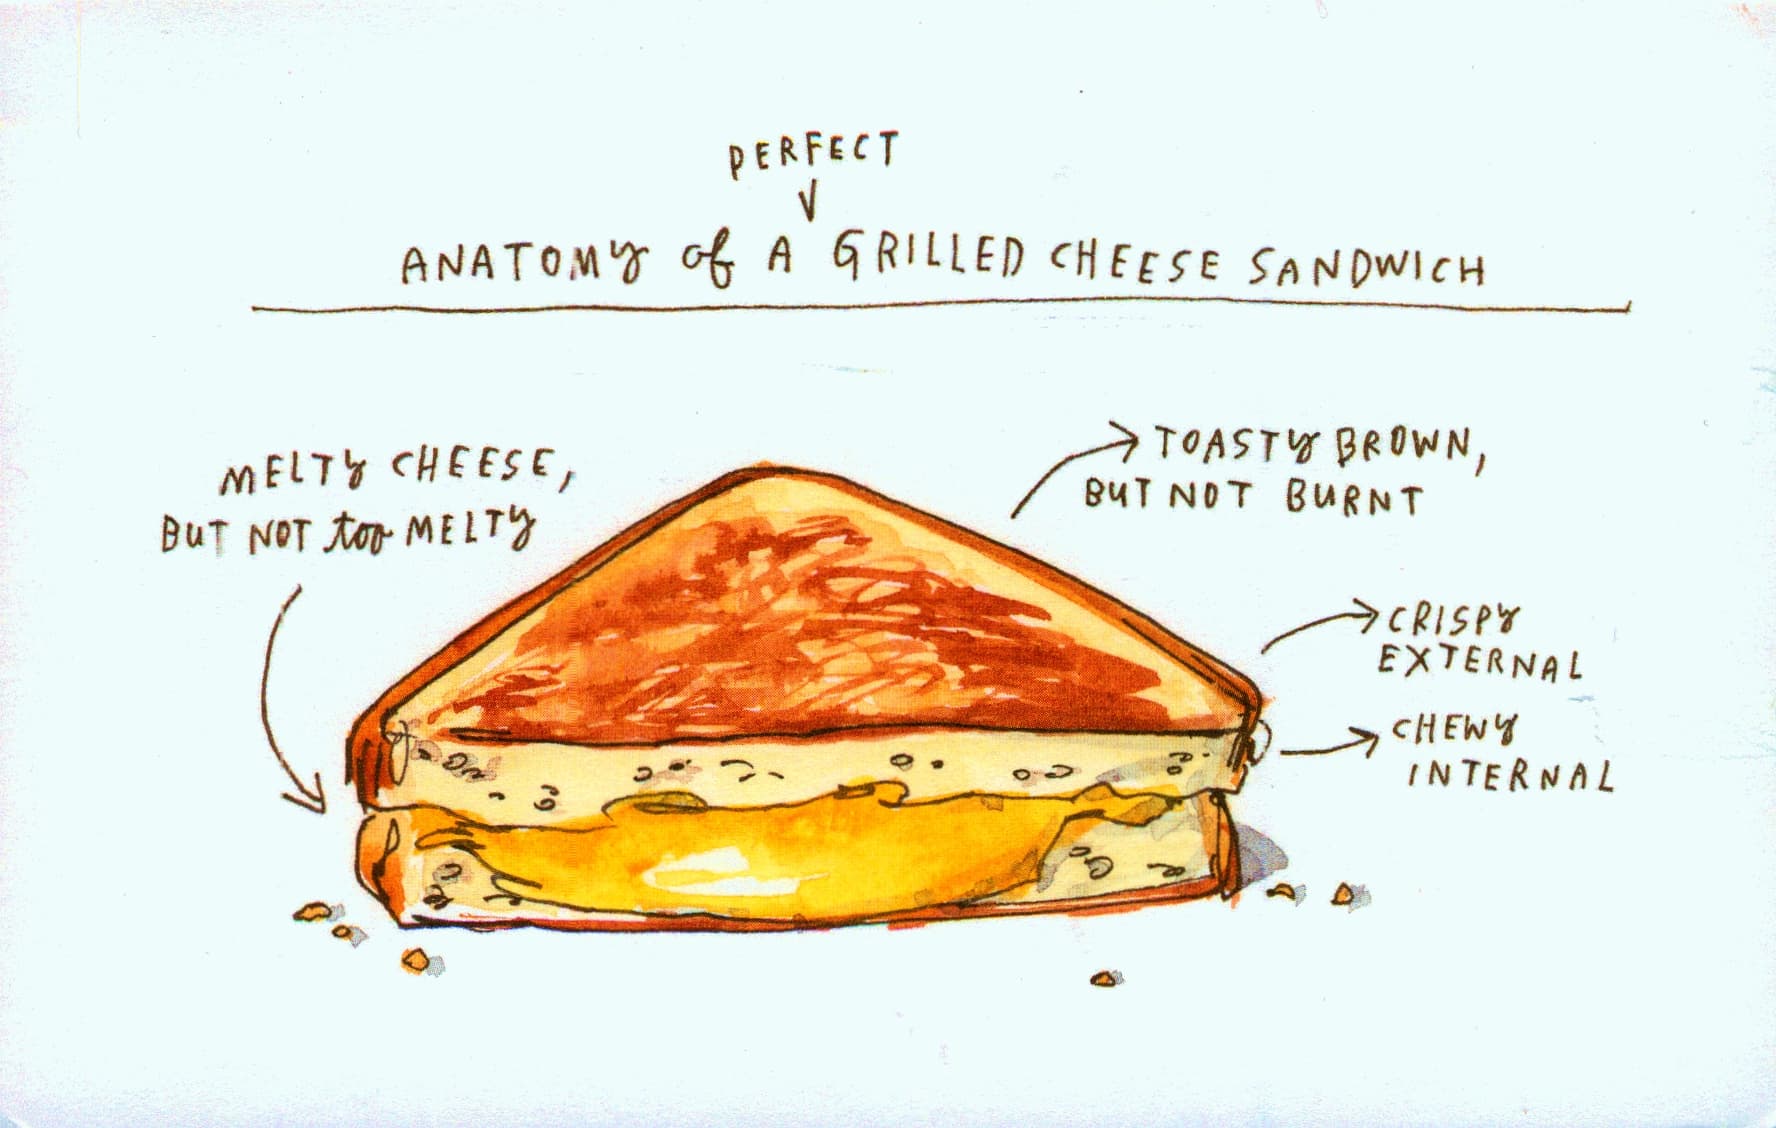 PERFECT
ANATOMY of A GRILLED CHEESE SANDWICH
MELTY CHEESE,
BUT NOT too MELTY
TOASTY BROWN,
BUT NOT BURNT
CRISPY
EXTERNAL
CHEWY
INTERNAL